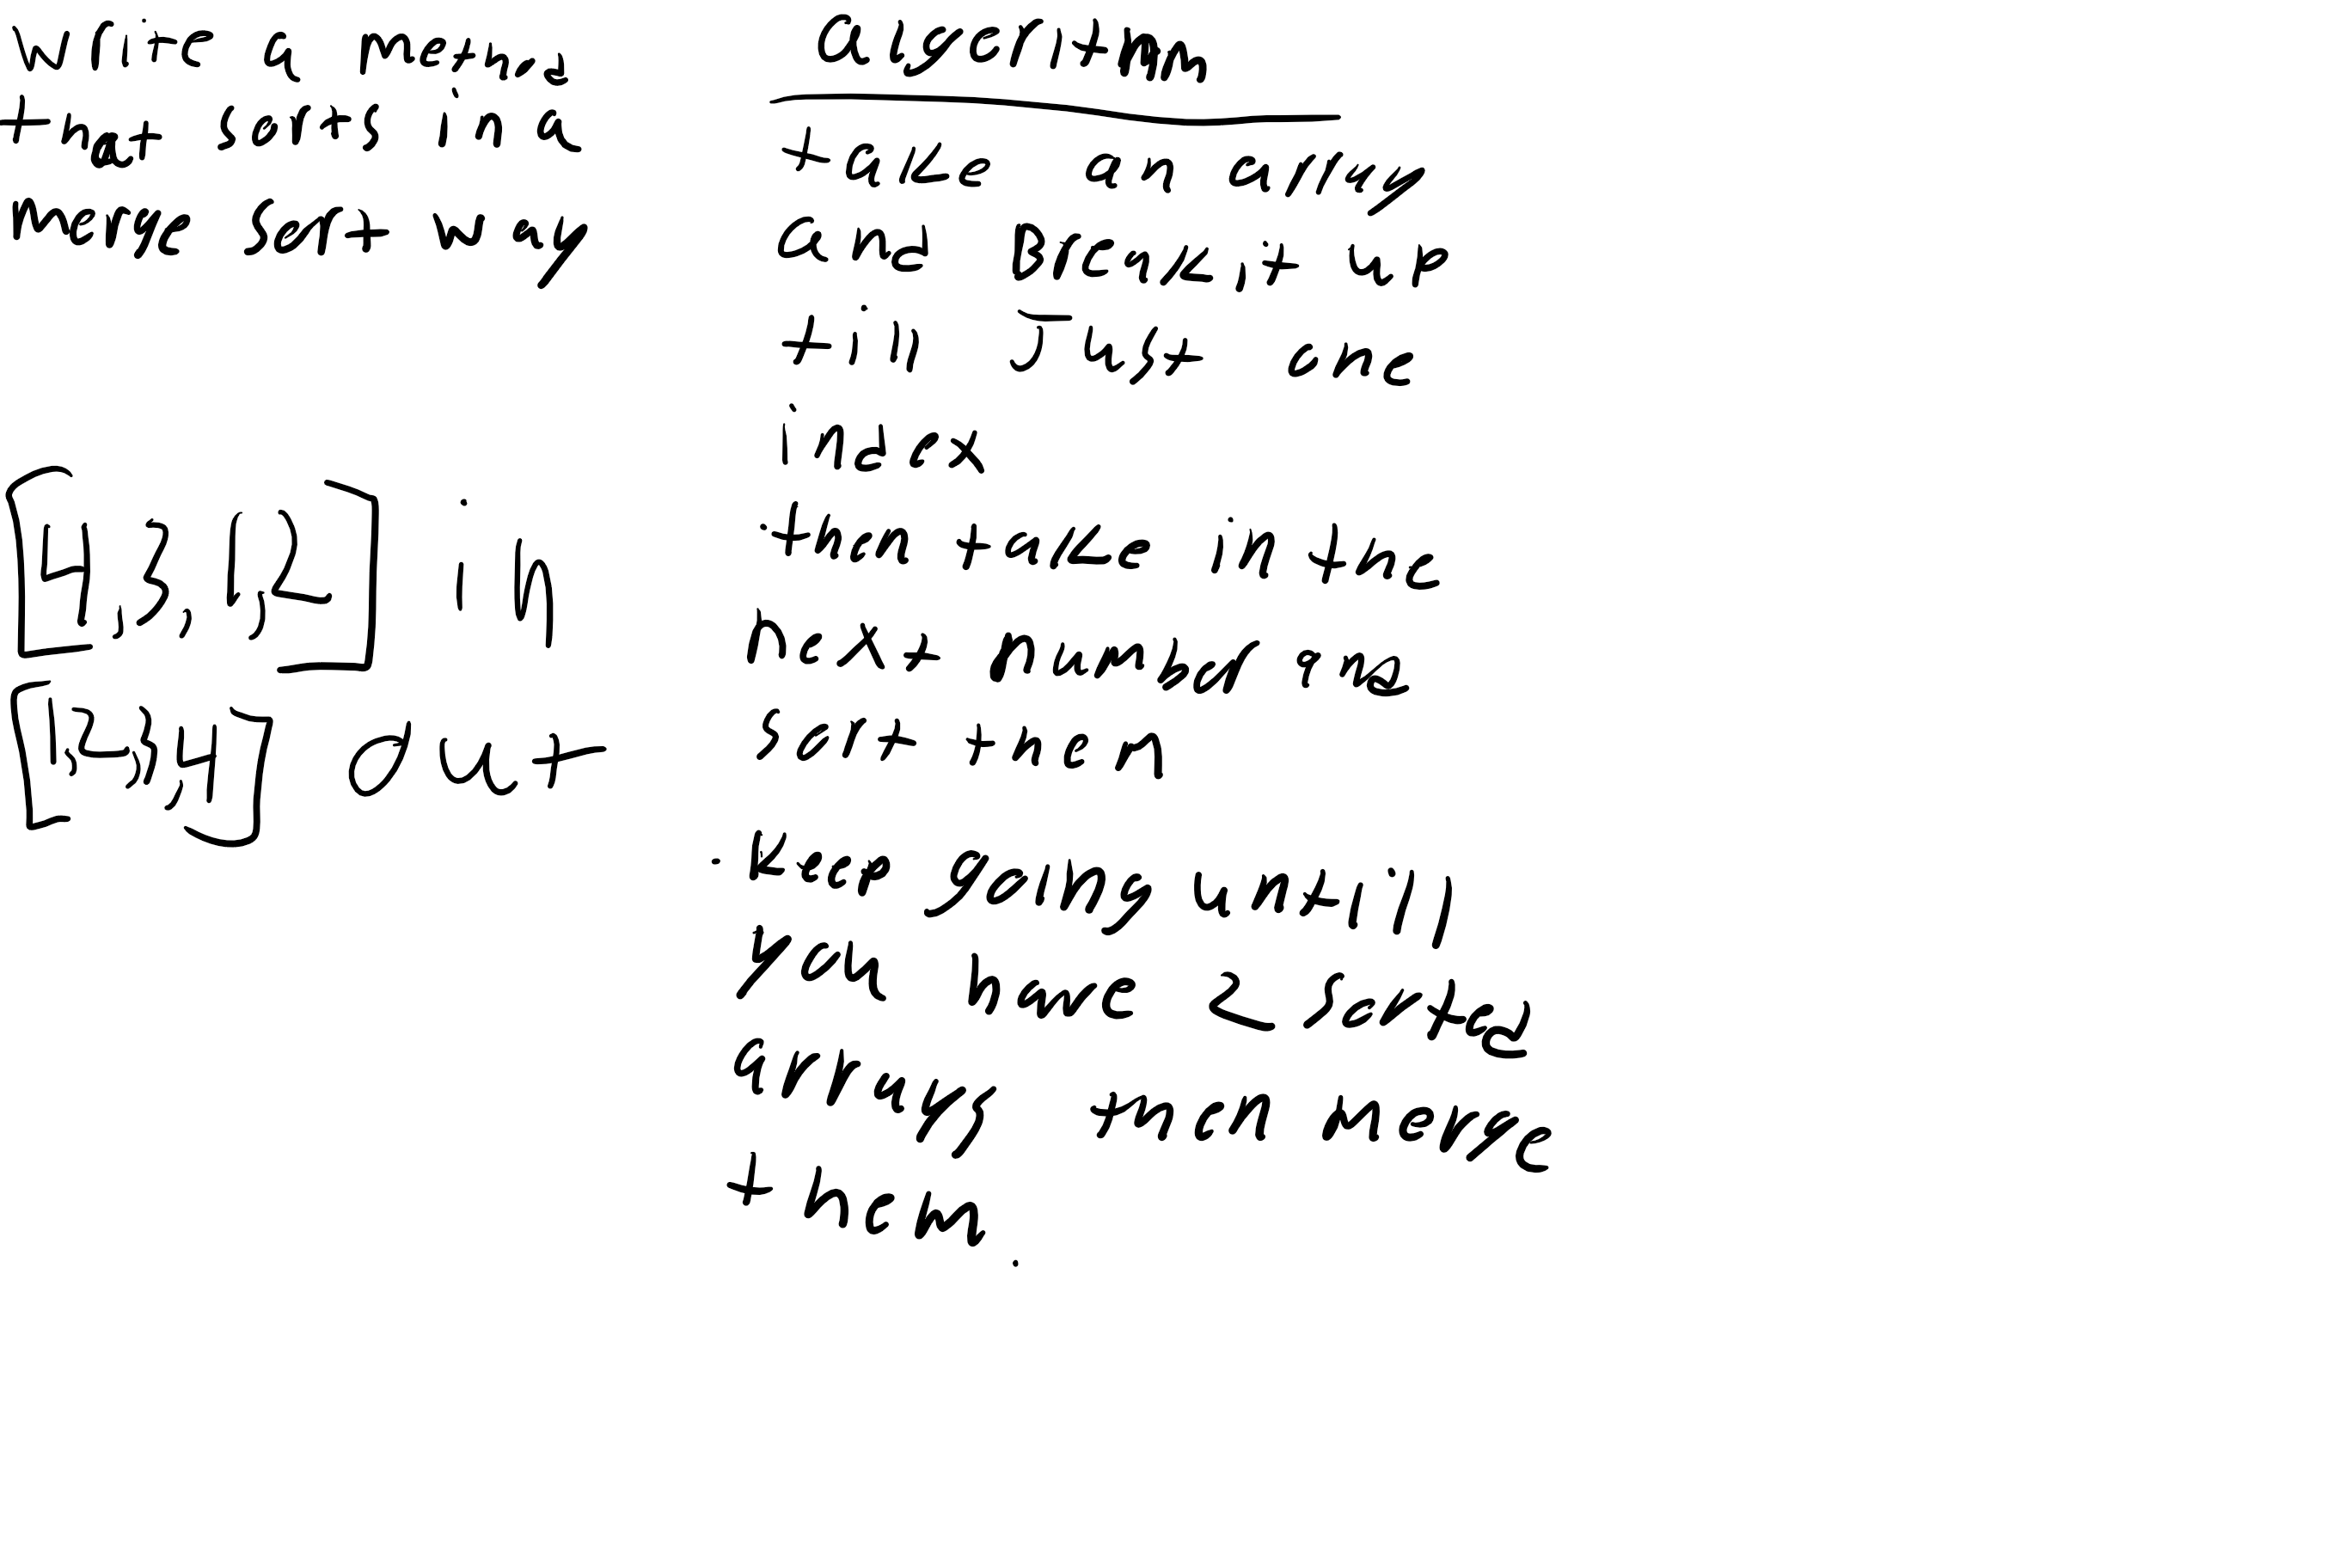 Write a method
that sorts in a
merge sort way
[4,3,1,2] in
[1,2,3,4] out
algorithm
take an array
and Break it up
till Just one
index
·then take in the
next number and
sort them
·keep going untill
you have 2 sorted
arrays then merge
them.